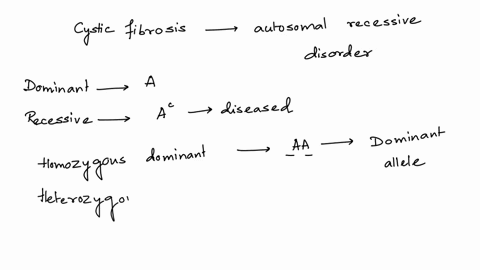 Cystic fibrosis → autosomal recessive
disorder
Dominant → A
Recessive → Aᶜ → diseased
Homozygous dominant → AA → Dominant
allele
Heterozygo